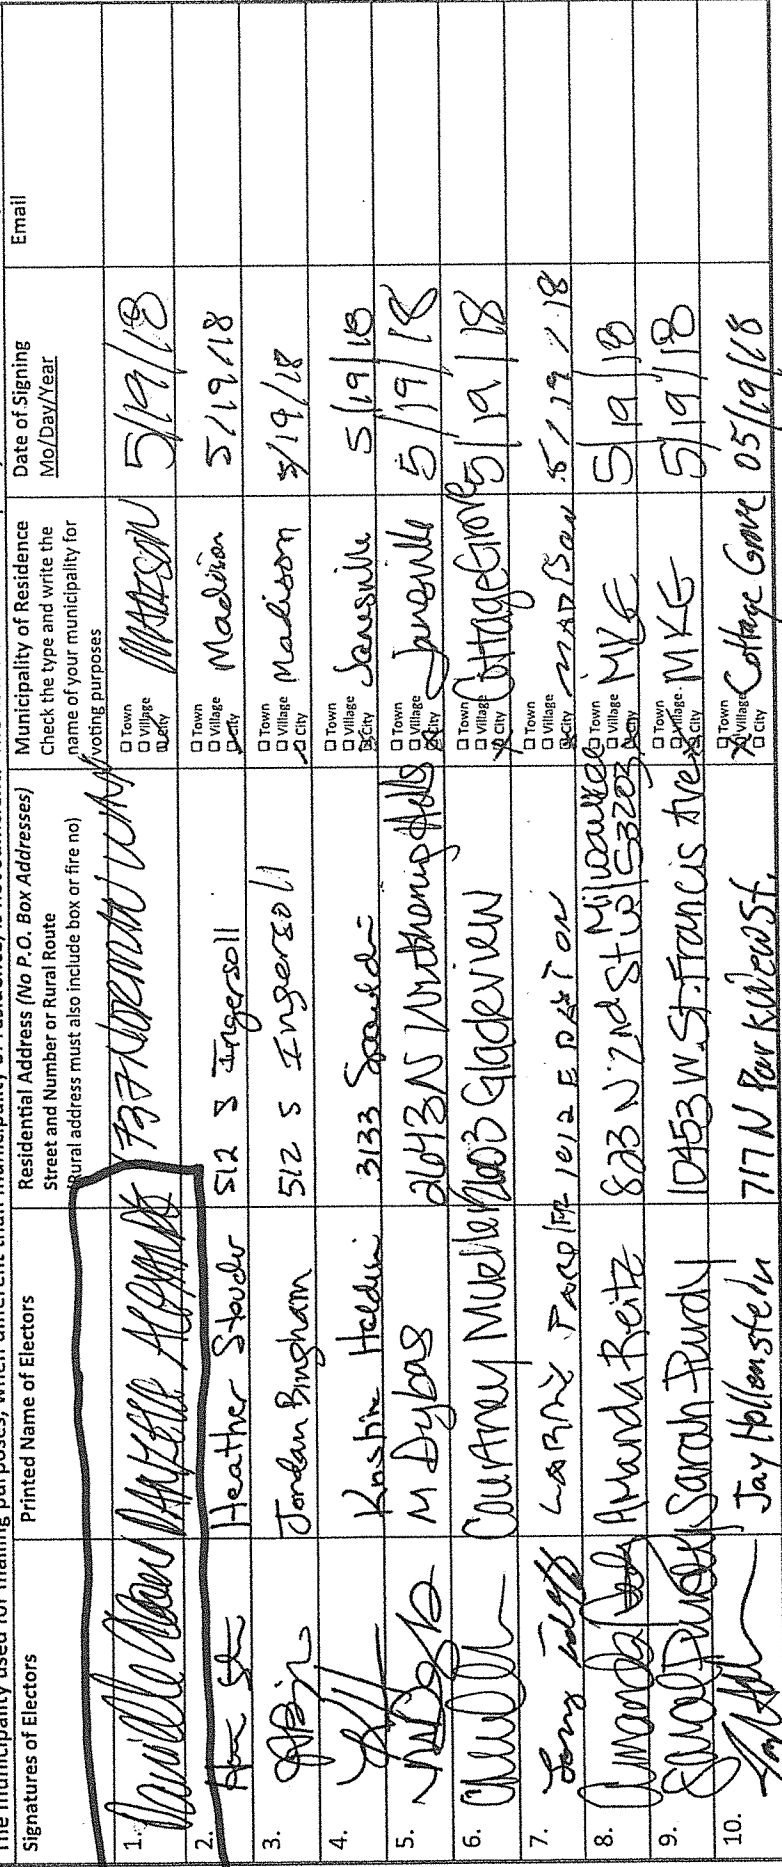 Signatures of Electors
Printed Name of Electors
Residential Address (No P.O. Box Addresses)
Street and Number or Rural Route
Rural address must also include box or fire no)
Municipality of Residence
Check the type and write the
name of your municipality for
voting purposes
Date of Signing
Mo/Day/Year
Email
1. 737 □ Town □ Village □ City Madison 5/19/18
2. Heather 512 S Ingersoll □ Town □ Village □ City Madison 5/19/18
3. Jordan Bingham 512 S Ingersoll □ Town □ Village □ City Madison 5/19/18
4. Kristin 3133 □ Town □ Village □ City Janesville 5/19/18
5. M Dybas 2643 N Wuthering Hills □ Town □ Village □ City Janesville 5/19/18
6. Courtney Mueller 2603 Gladeview □ Town □ Village □ City Cottage Grove 5/19/18
7. 1012 E DAYTON □ Town □ Village □ City MADISON 5/19/18
8. Amanda Reitz 823 N 2nd St Milwaukee WI 53203 □ Town □ Village □ City MKE 5/19/18
9. Sarah Purdy 10453 W. St. Francis Ave □ Town □ Village □ City MKE 5/19/18
10. Jay Hollenstein 717 N Parkview St. □ Town □ Village □ City Cottage Grove 05/19/18